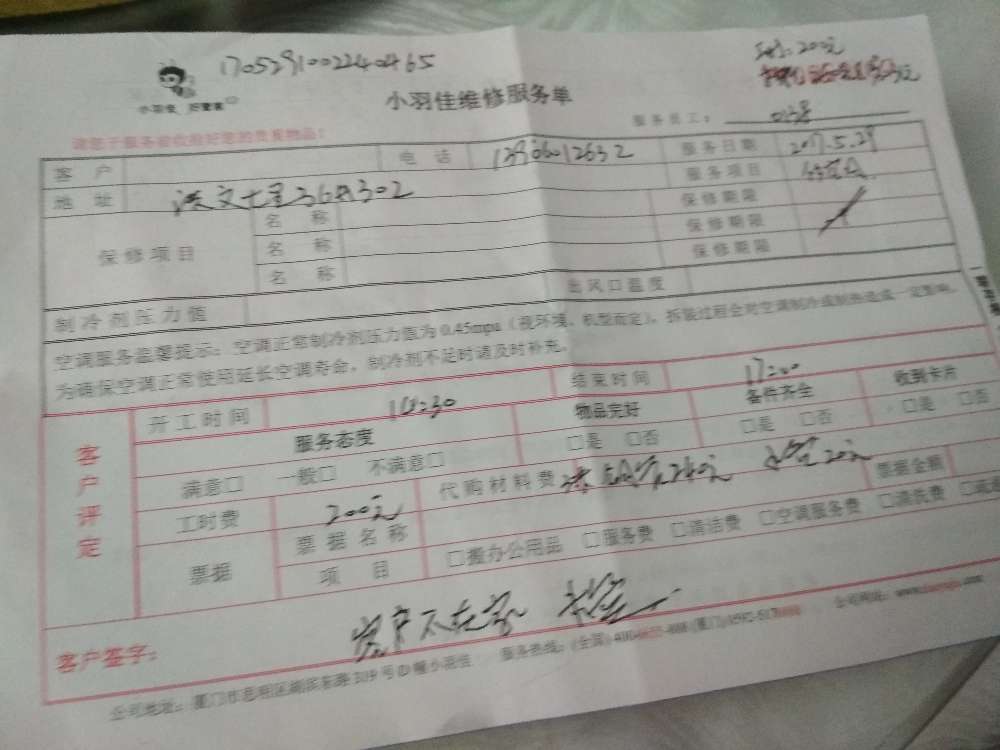 1705291002240465
200元
小羽佳 好管家
小羽佳维修服务单
请您于服务前收拾好您的贵重物品！
服务员工： 0138
客户 电话 服务日期 2017.5.29
地址 36 302 服务项目
保修项目 名称 保修期限
名称 保修期限
名称 保修期限
制冷剂压力值 出风口温度
空调服务温馨提示：空调正常制冷剂压力值为0.45mpa（视环境、机型而定），拆装过程会对空调制冷或制热造成一定影响，
为确保空调正常使用延长空调寿命，制冷剂不足时请及时补充。
客户评定
开工时间 10:30 结束时间 17:00
服务态度 物品完好 备件齐全 收到卡片
满意□ 一般□ 不满意□ □是 □否 □是 □否 □是 □否
工时费 200元 代购材料费 240元 20元 票据金额
票据 票据名称
项目 □搬办公用品 □服务费 □清洁费 □空调服务费 □清洗费
客户签字： 客户不在家
公司地址：厦门市思明区湖滨东路319号D幢小羽佳 服务热线：(全国) (厦门) 公司网站：